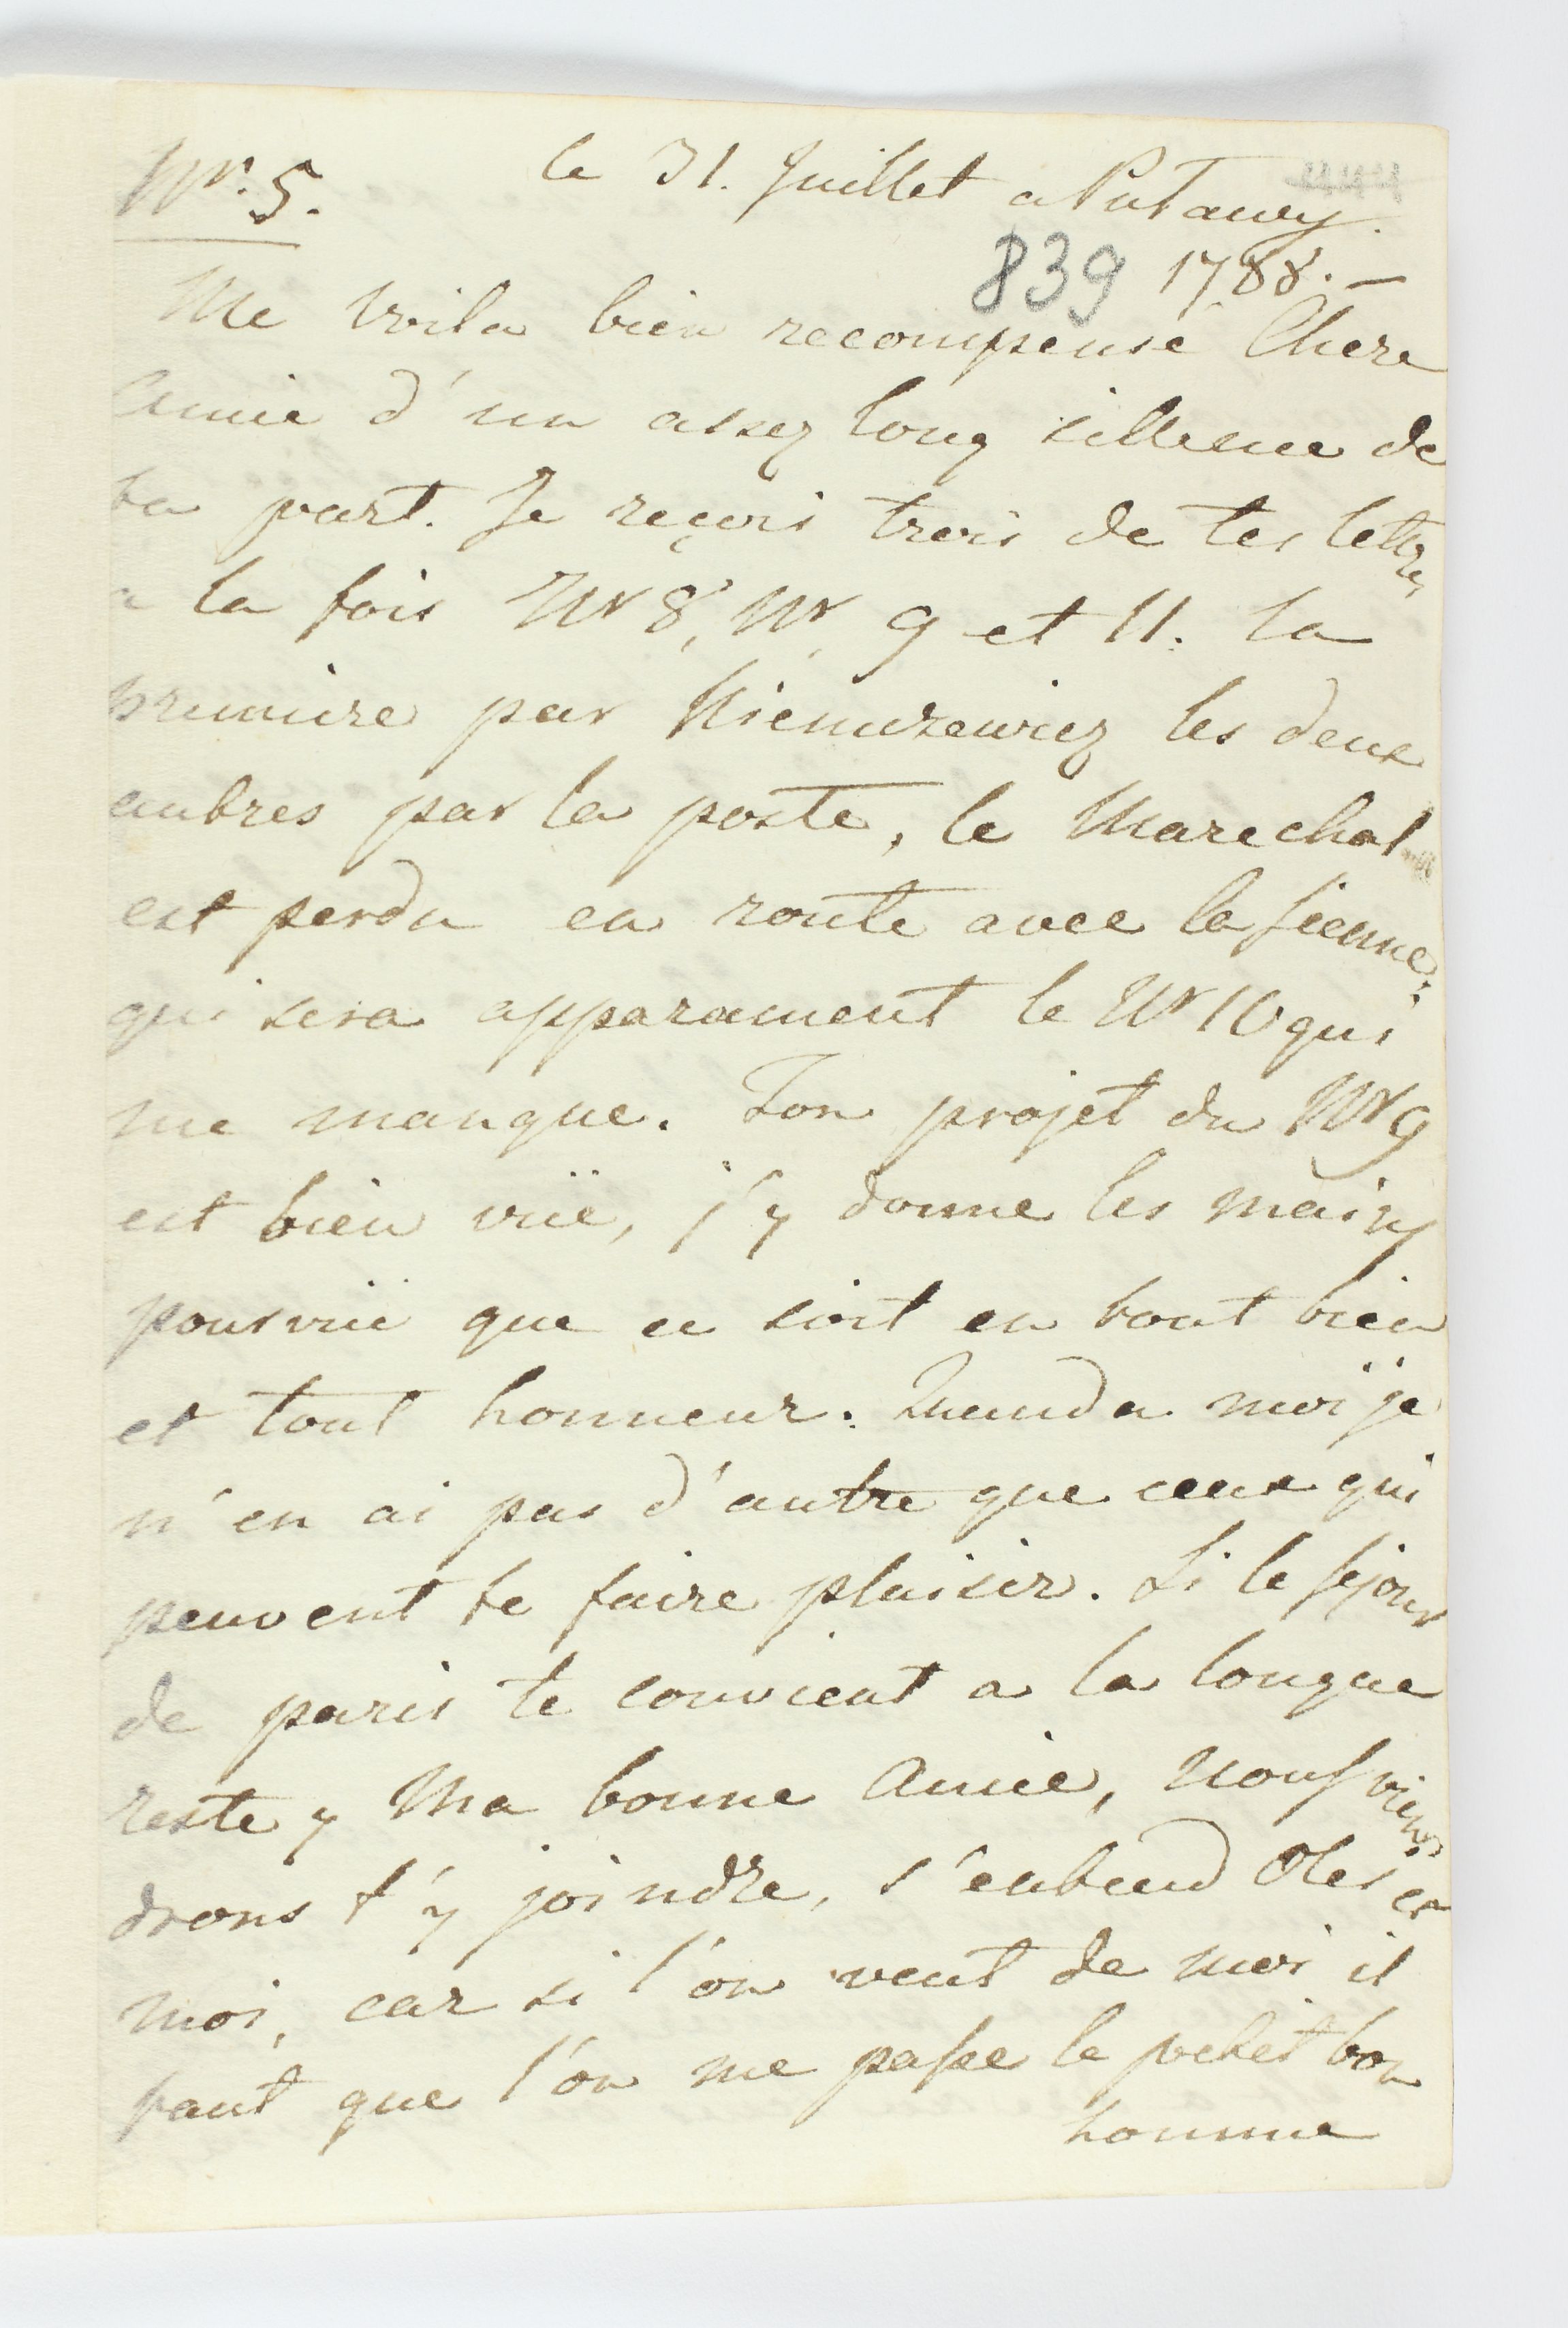 Nr. 5.
le 31. Juillet a Putawy.
839 1788. —
Me voila bien recompensé Chere
Amie d'un assez long sillence de
ta part. Je reçois trois de tes lettres
a la fois Nr 8, Nr, 9 et 11. la
premiere par Niemzewicz les deux
autres par la poste, le Marechal
est perdu en route avec la sienne,
qui sera apparament le Nr 10 qui
me manque. Ton projet du Nr 9
est bien vüe, j'y donne les mains
pourvüe que ce soit en tout bien
et tout honneur. Quand a moi je
n'en ai pas d'autre que ceux qui
peuvent te faire plaisir. Si le sejour
de paris te convient a la longue
reste y Ma bonne Amie, nous vien-
drons t'y joindre, s'entend Oles et
moi, car si l'on veut de moi il
faut que l'on me passe le petit bon
homme